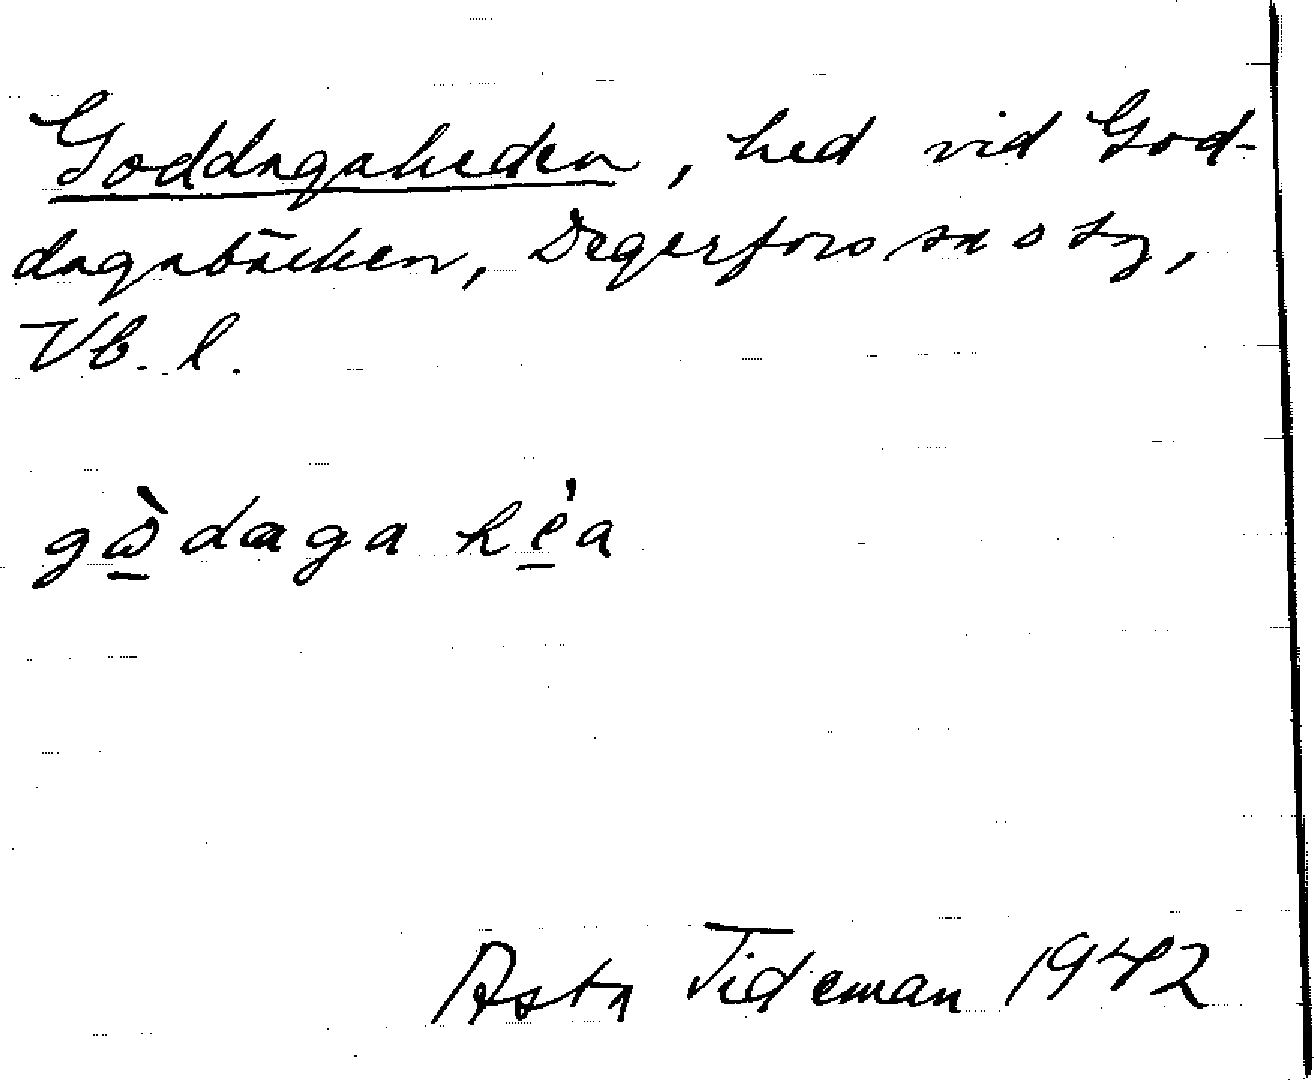 Goddagaheden, hed vid God-
dagabäcken, Degerfors sn o tg,
Vb. l.
gòdaga héa
Asta Tideman 1942